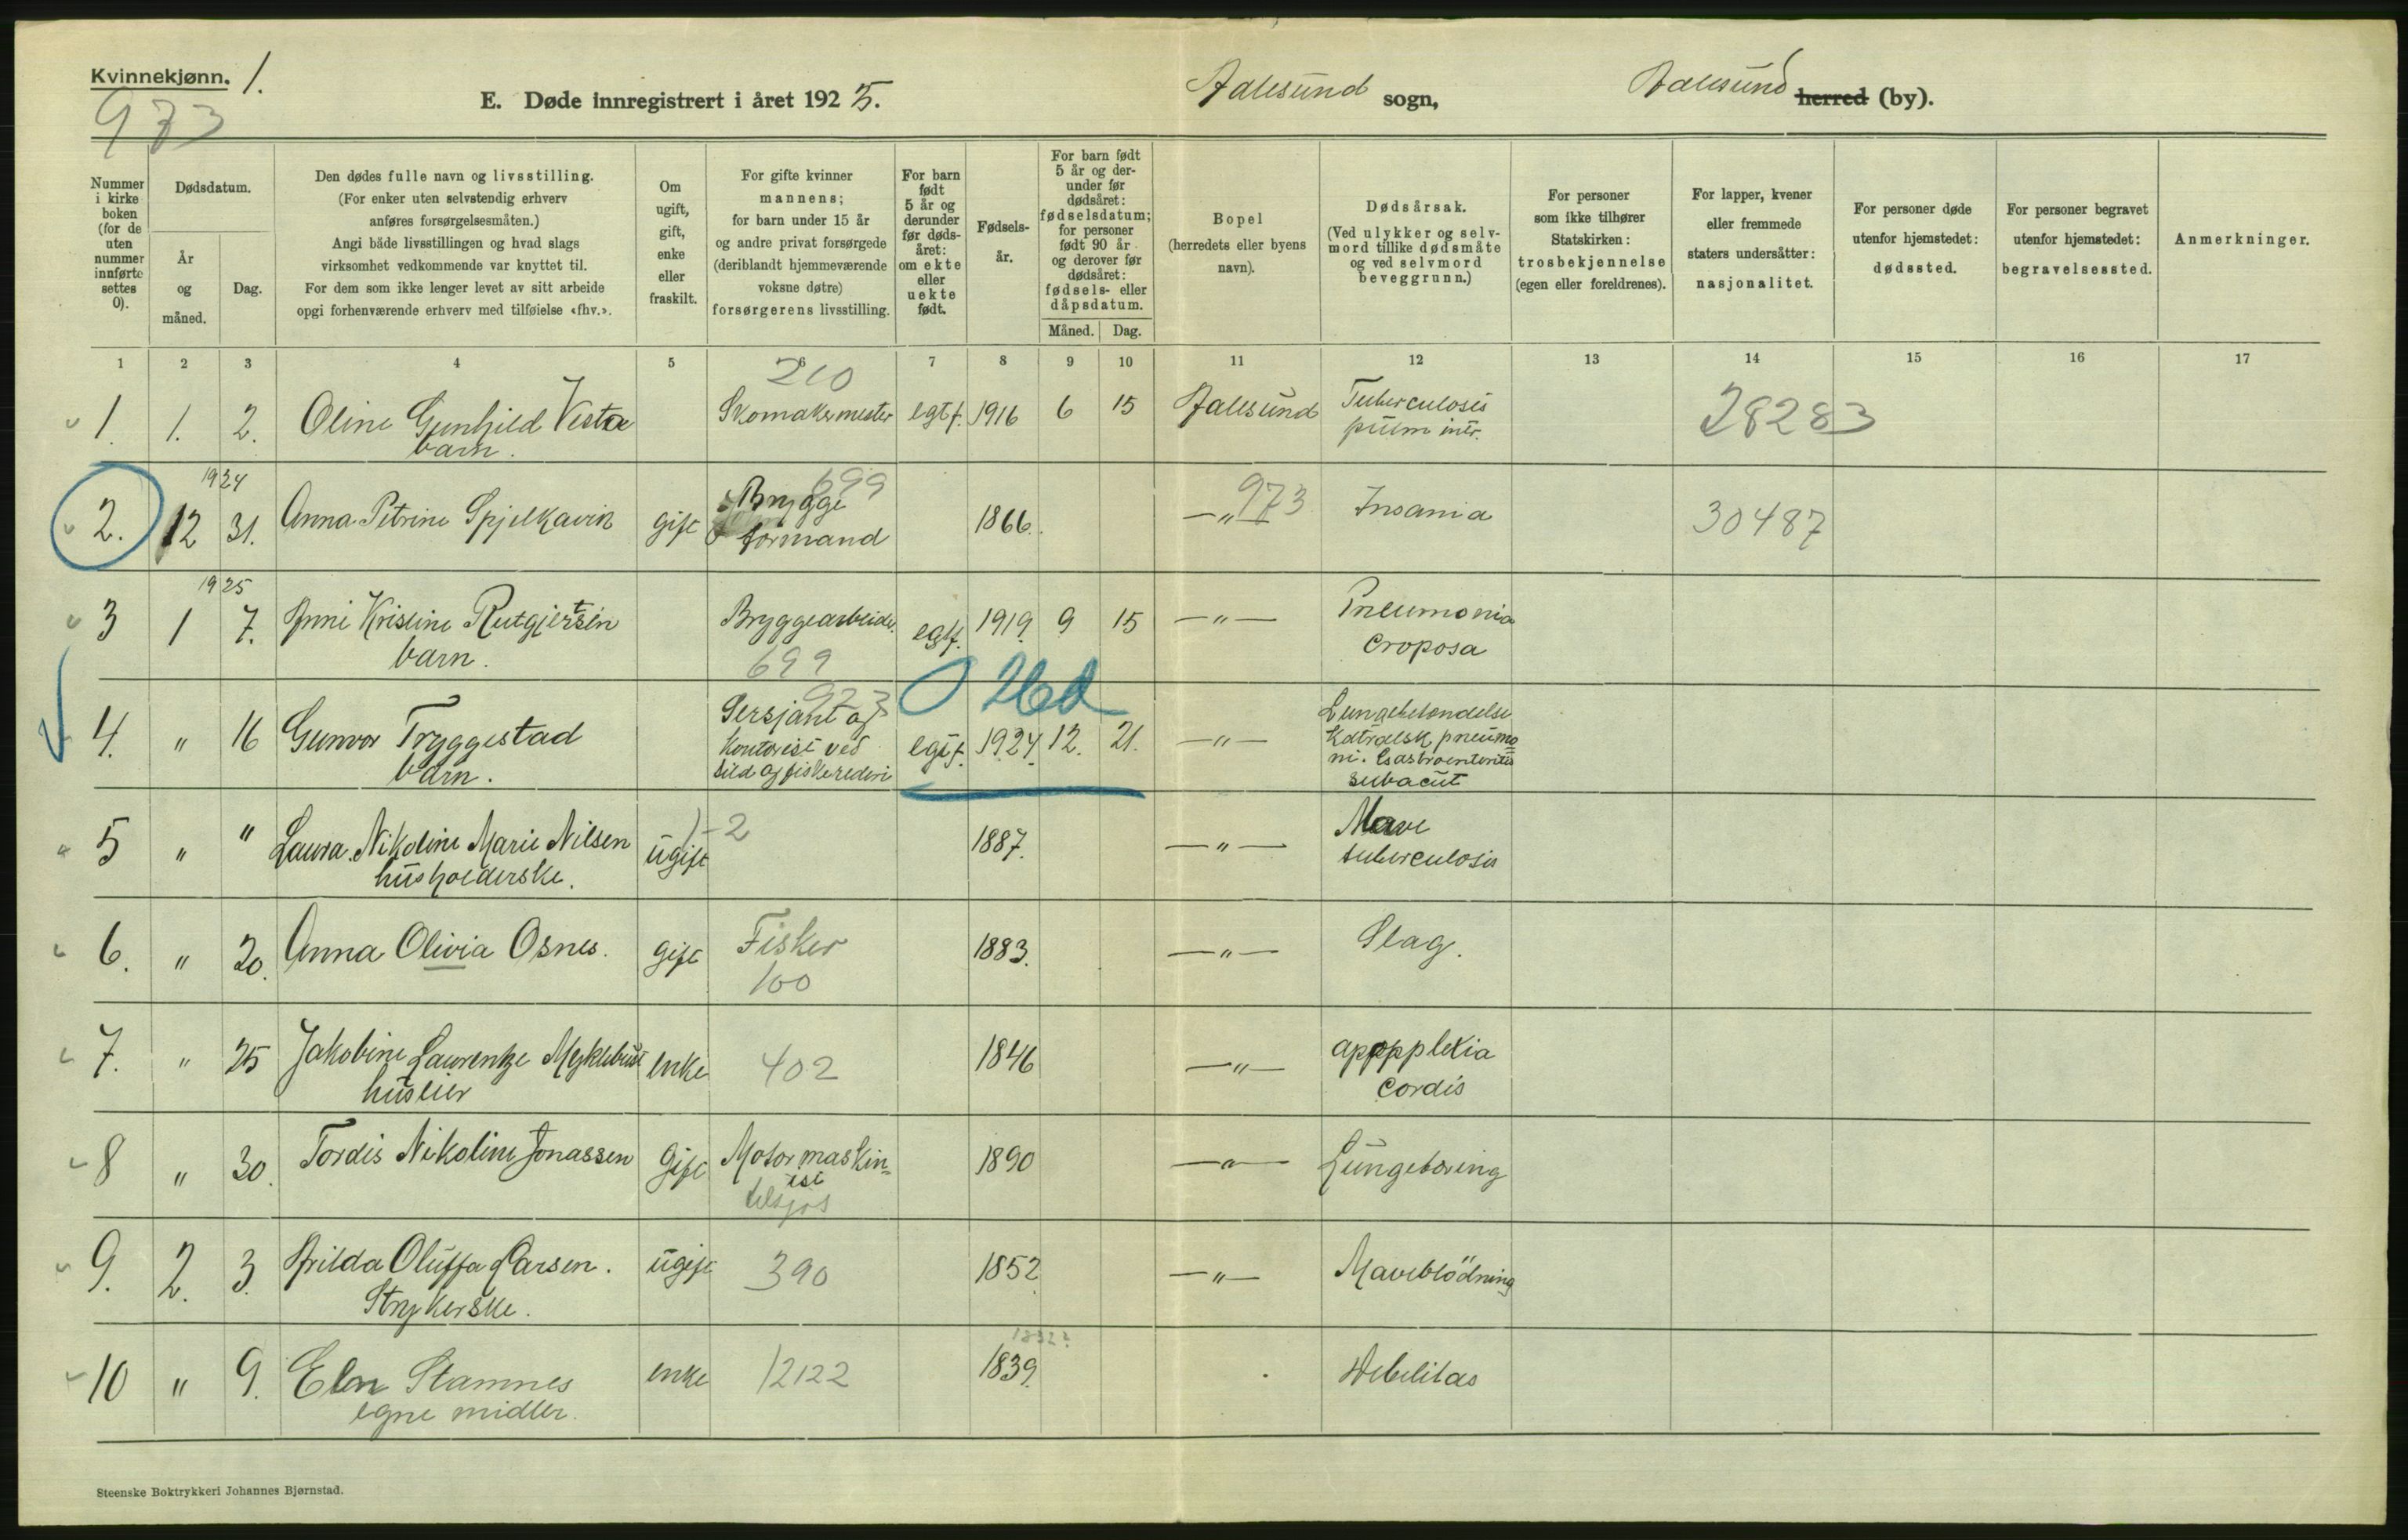 Kvinnekjønn. 1.
973
E. Døde innregistrert i året 1925.
Aalesund sogn,
Aalesund herred (by).
Nummer i kirke boken (for de uten nummer innførte settes 0).
Dødsdatum.
År og måned.
Dag.
Den dødes fulle navn og livsstilling.
(For enker uten selvstendig erhverv
anføres forsørgelsesmåten.)
Angi både livsstillingen og hvad slags
virksomhet vedkommende var knyttet til.
For dem som ikke lenger levet av sitt arbeide
opgi forhenværende erhverv med tilføielse «fhv.».
Om ugift, gift, enke eller fraskilt.
For gifte kvinner
mannens;
for barn under 15 år
og andre privat forsørgede
(deriblandt hjemmeværende
voksne døtre)
forsørgerens livsstilling.
For barn født 5 år og derunder før dødsåret: om ekte eller uekte født.
Fødselsår.
For barn født 5 år og derunder før dødsåret: fødselsdatum; for personer født 90 år og derover før dødsåret: fødsels- eller dåpsdatum.
Måned. Dag.
Bopel
(herredets eller byens
navn).
Dødsårsak.
(Ved ulykker og selvmord tillike dødsmåte og ved selvmord beveggrunn.)
For personer
som ikke tilhører
Statskirken:
trosbekjennelse
(egen eller foreldrenes).
For lapper, kvener
eller fremmede
staters undersåtter:
nasjonalitet.
For personer døde
utenfor hjemstedet:
dødssted.
For personer begravet
utenfor hjemstedet:
begravelsessted.
Anmerkninger.
1 2 3 4 5 6 7 8 9 10 11 12 13 14 15 16 17
210
1. 1. 2. Oline Gunhild Vestre Skomakermester egt f. 1916 6 15 Aalesund Tuberculosis 28283
barn. pulm
1924 699 973
2. 12 31. Anna Petrine Spjelkavik gift Brygge 1866. —"— Insania 30487
formand
1925
3 1 7. Anni Kristine Rutgjersen Bryggearbeider. egt f. 1919 9 15 —"— Pneumonia
barn. 699 croposa
973
4. " 16 Gunvor Tryggestad Sersjant og egt f. 1924. 12. 21. —"— Lungebetendelse
barn. Kontorist ved Katralsk pneumo
sild og fiskerederi ni. Gastroenteritis
subacut
0 26 d
5 " " Laura Nikoline Marie Nilsen ugift 1-2 1887. —"— Mave
husholderske. tuberculosis
6. " 20. Anna Olivia Osnes. gift Fisker 1883. —"— Slag.
100
7. " 25 Jakobine Laurentze Myklebust enke 402 1846 —"— appopplexia
huseier cordis
8 " 30. Tordis Nikoline Jonassen Gift Motormaskin= 1890 —"— Lungetæring
ist
tilsjøs
9. 2. 3. Hilda Oluffa Larsen. ugift 390 1852. —"— Maveblödning
Strykerske.
1832?
10 " 9. Elen Stamnes enke 12122 1839. Debilitas
egne midler.
Steenske Boktrykkeri Johannes Bjørnstad.